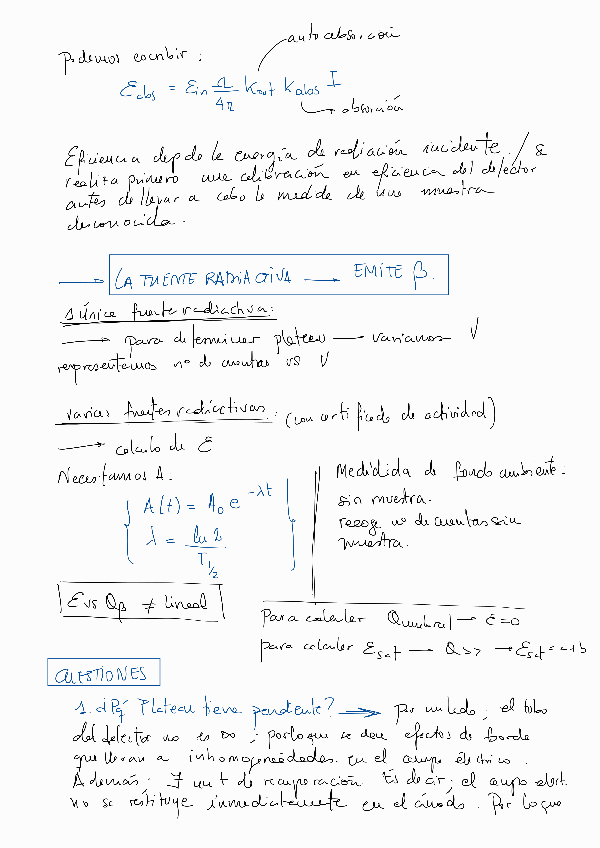 autoabsorción
Podemos escribir :
Ɛabs = Ɛin Ω/4π Kaut Kabs I
absorción
Eficiencia depde de la energía de radiación incidente. / Se
realiza primero una calibración en eficiencia del detector
antes de llevar a cabo la medida de una muestra
desconocida.
→ LA FUENTE RADIACTIVA → EMITE β.
1 única fuente radiactiva:
→ para determinar plateau → variamos V
representamos nº de cuentas vs V
varias fuentes radiactivas. (con certificado de actividad)
→ calculo de Ɛ
Necesitamos A.
A(t) = A₀ e^-λt
λ = ln 2 / T1/2
Medidida de fondo ambiente.
sin muestra.
recoge nº de cuentas sin
muestra.
Ɛ vs Qβ ≠ lineal
Para calcular Qumbral → Ɛ=0
para calcular Ɛsat → Q>> → Ɛsat = a+b
CUESTIONES
1. ¿Pq Plateau tiene pendiente? → por un lado, el tubo
del detector no es ∞; por lo que se dan efectos de borde
que llevan a inhomogeneidades en el campo eléctrico.
Además; ∃ un t de recuperación Es decir; el campo elect.
no se restituye inmediatamente en el ánodo. Por lo que